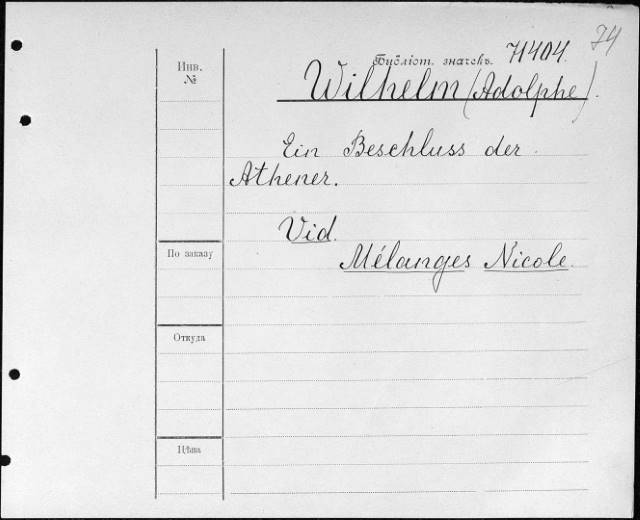 74
Библіот. значекъ. 71404.
Инв.
№
Wilhelm (Adolphe).
Ein Beschluss der
Athener.
Vid.
По заказу
Mélanges Nicole.
Откуда
Цѣна